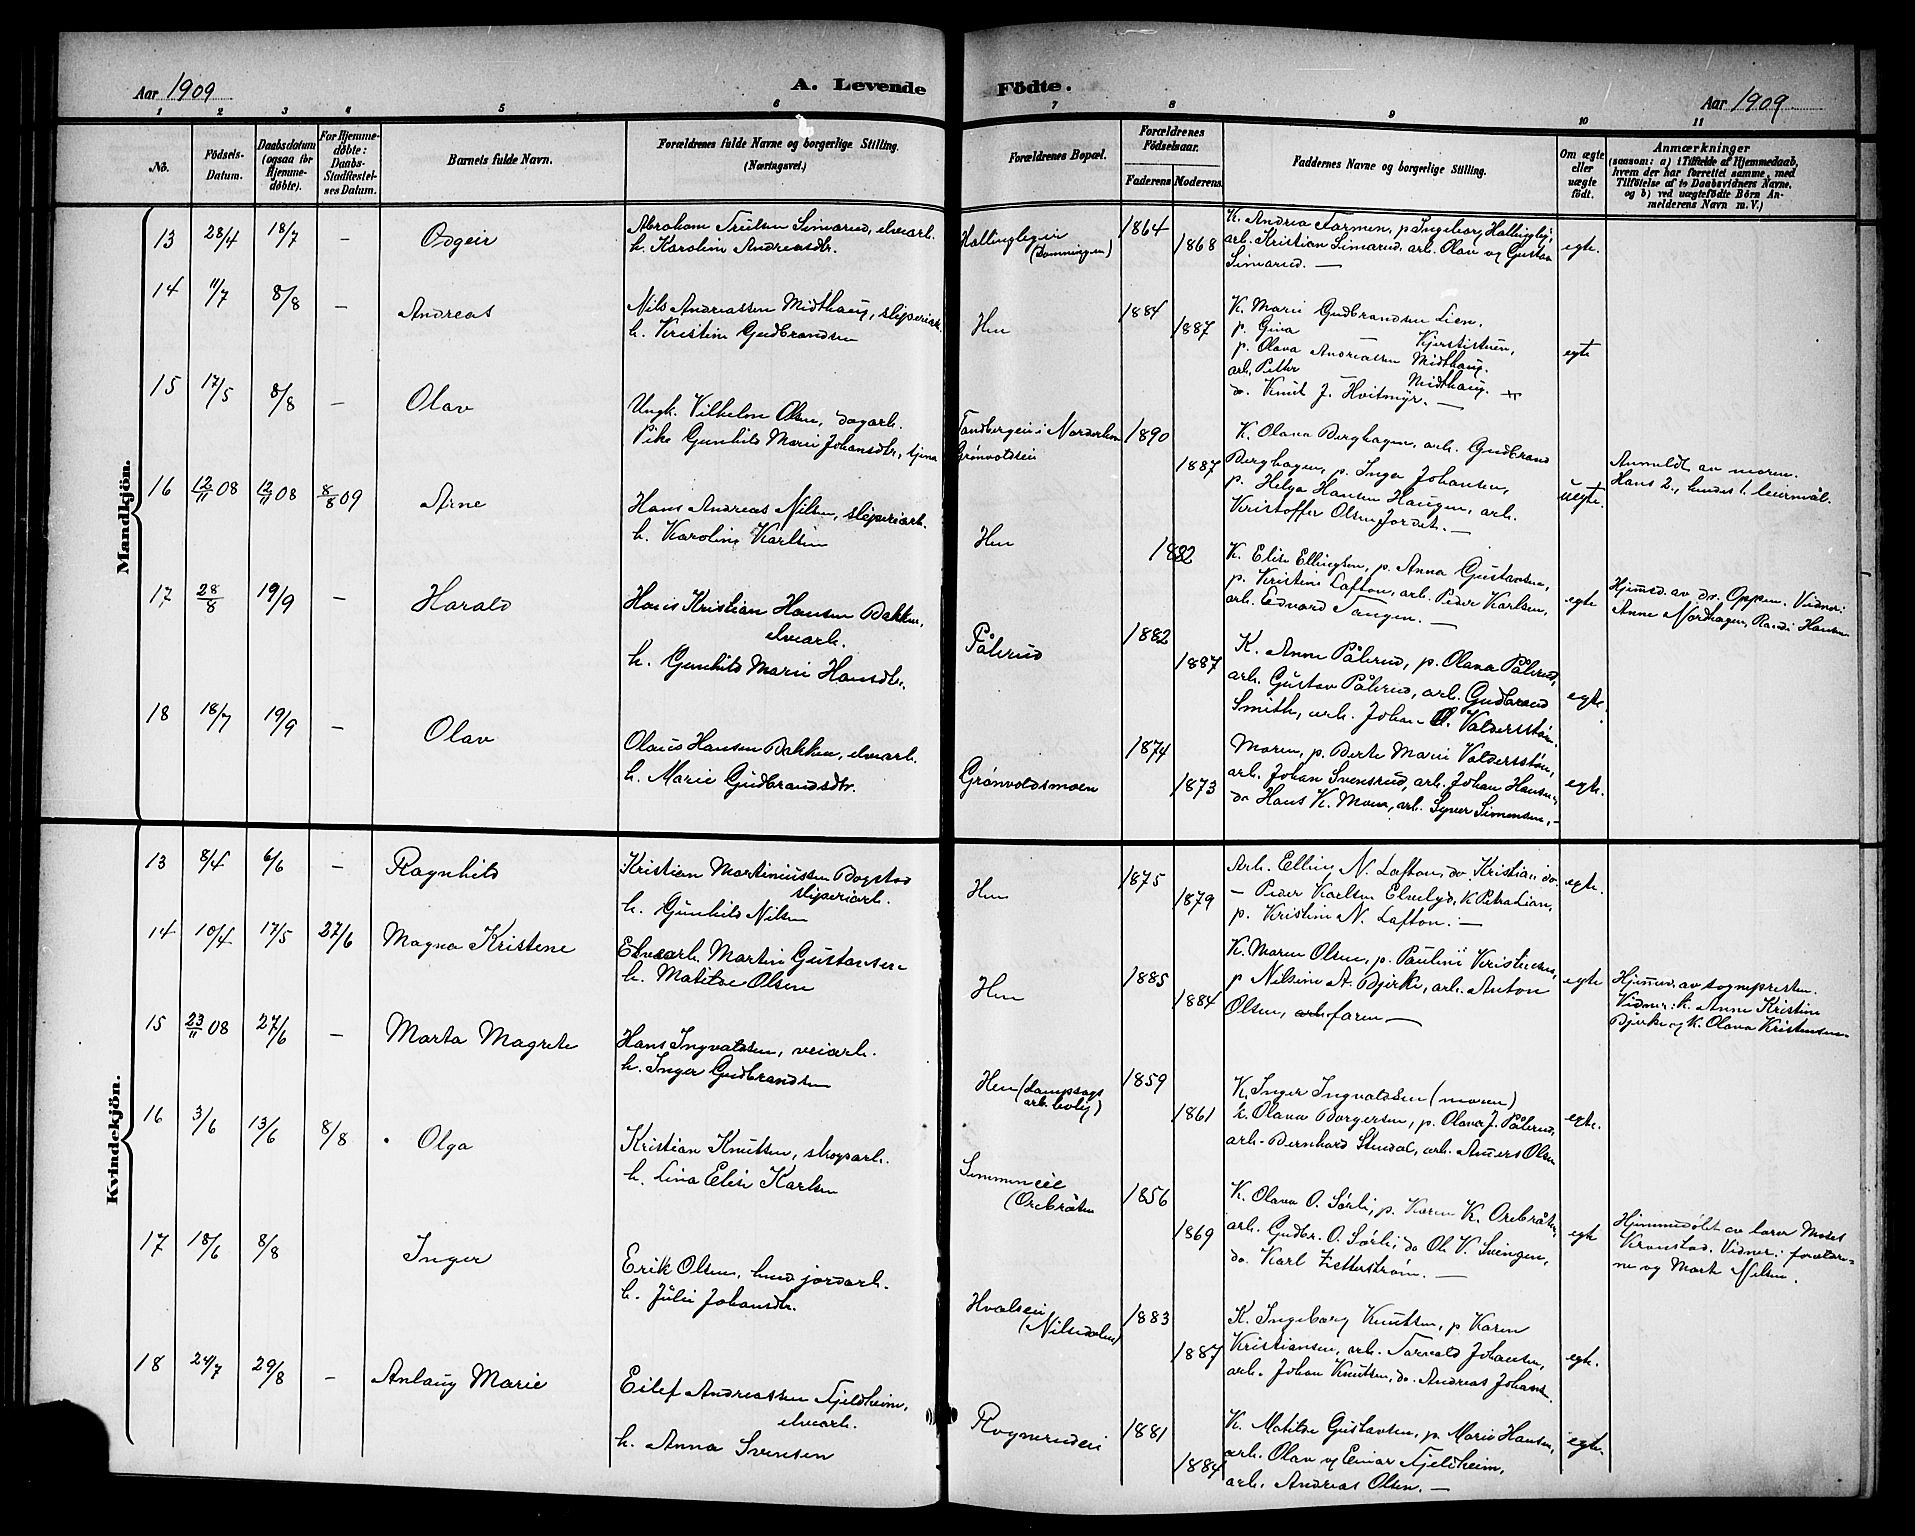 Aar 1909
A. Levende Födte.
Aar 1909
1 2 3 4 5 6 7 8 9 10 11
No.
Födsels-Datum.
Daabsdatum (ogsaa för Hjemmedöbte).
For Hjemmedöbte: Daabs-Stadfæstelses Datum.
Barnets fulde Navn.
Forældrenes fulde Navne og borgerlige Stilling.
(Næringsvei.)
Forældrenes Bopæl.
Forældrenes Födselsaar.
Faderens Moderens.
Faddernes Navne og borgerlige Stilling.
Om ægte eller uægte födt.
Anmærkninger
(saasom: a) i Tilfælde af Hjemmedaab,
hvem der har forrettet samme, med
Tilföielse af to Daabsvidners Navne,
og b) ved uægtefödte Börn An-
melderens Navn m. V.)
Mandkjön.
13 28/4 18/7 - Odgeir
Abraham Truelsen Simarud, elvearb.
h. Karolin Andreasdtr.
Hallingbyei
1864
1868
K. Andrea Farmen, p. Ingeborg Hallingby,
arb. Kristian Simarud, arb. Olav og Gustav
Simarud. —
egte.
14 11/7 8/8 - Andreas
Nils Andreassen Midthaug, sliperiarb.
h. Kristine Gudbrandsen
Hen
1884
1887
K. Marie Gudbrandsen Lien,
p. Gina Kjerstistuen,
p. Olava Andreassen Midthaug.
arb. Petter Midthaug.
do. Knut J. Hvitmyr. —
egte
15 17/5 8/8 - Olav
Ungk. Vilhelm Olsen, dagarb.
Pike Gunhild Marie Johansdtr, tjener
Tandbergeie i Norderhov
Grønvoldseie
1890
1887
K. Olava Berghagen, arb. Gudbrand
Berghagen, p. Inga Johansen,
p. Helga Hansen Haugen, arb.
Kristoffer Olsen Jordet. —
uegte.
Anmeldt av moren.
Hans 2., hendes 1. leiermål.
16 12/11 08 12/11 08 8/8 09 Arne
Hans Andreas Nilsen, sliperiarb.
h. Karoline Karlsen
Hen
1882
K. Elise Ellingsen, p. Anna Gustavsen,
p. Kristine Lafton, arb. Peder Karlsen,
arb. Edvard Tangen. —
egte
Hjemmed. av dr. Oppen. Vidner:
Anne Nordhagen, Randi Hansen
17 28/8 19/9 - Harald
Hans Kristian Hansen Bakken,
elvearb.
h. Gunhild Marie Hansdtr.
Pålerud
1882
1887
K. Anne Pålerud, p. Olava Pålerud,
arb. Gustav Pålerud, arb. Gudbrand
Smith, arb. Johan O. Valdersstøen.
egte.
18 18/7 19/9 - Olav
Olaus Hansen Bakken, elvearb.
h. Marie Gudbrandsdtr.
Grønvoldsmoen
1874
1873
Moren, p. Berte Marie Valdersstøen,
arb. Johan Svensrud, arb. Johan Hansen,
do Hans K. Moen, arb. Syver Simensen, -
egte.
Kvindekjön.
13 8/4 6/6 - Ragnhild
Kristian Martiniussen Bogstad
sliperiarb.
h. Gunhild Nilsen
Hen
1875
1879
Arb. Elling N. Lafton, do Kristian do.
— Peder Karlsen Elvelyd, K. Petra Lian,
p. Kristine N. Lafton. —
egte.
14 10/4 17/5 27/6 Magna Kristene
Elvearb. Martin Gustavsen
h. Matilde Olsen
Hen
1885
1884
K. Maren Olsen, p. Pauline Kristensen,
p Nilsine A. Bjerke, arb. Anton
Olsen, arb. faren —
egte
Hjemmed. av sogneprесten.
Vidner: k. Anne Kristine
Bjerke og k. Olava Kristensen
15 23/11 08 27/6 - Marta Magrete
Hans Ingvaldsen, veiarb.
h. Inger Gudbrandsen
Hen (dampsags
arb. bolig)
1859
1861
K. Inger Ingvaldsen (moren)
h. Olava Borgersen, p. Olava J. Pålerud,
arb. Bernhard Stendal, arb. Anders Olsen
egte.
16 3/6 13/6 8/8 Olga
Kristian Knutsen, skogsarb.
h. Lina Elise Karlsen
Simmneie
(Orebråten
1856
1869
K. Olava O. Sørli, p. Karen K. Orebråten,
arb. Gudbr. O. Sørli, do Ole K. Svingen,
do. Karl Zetterstrøm. —
egte
Hjemmedøbt av lærer Moses
Kronstad. Vidner: foreldre-
ne og Marte Nilsen.
17 18/6 8/8 Inger
Erik Olsen, husm jordarb.
h. Julie Johansdtr.
Hvalseie
(Nilsedalen)
1883
1887
K. Ingeborg Knutsen, p Karen
Kristiansen, arb. Torvald Johansen,
arb. Johan Knutsen, do. Andreas Johans.
egte.
18 24/7 29/8 - Anlaug Marie
Eilef Andreassen Fjeldheim,
elvearb.
h. Anna Svensen
Rognerudeie
1881
1884
K. Matilde Gustavsen, p. Marie Hansen,
arb. Olav og Einar Fjeldheim,
arb. Andreas Olsen. —
egte.